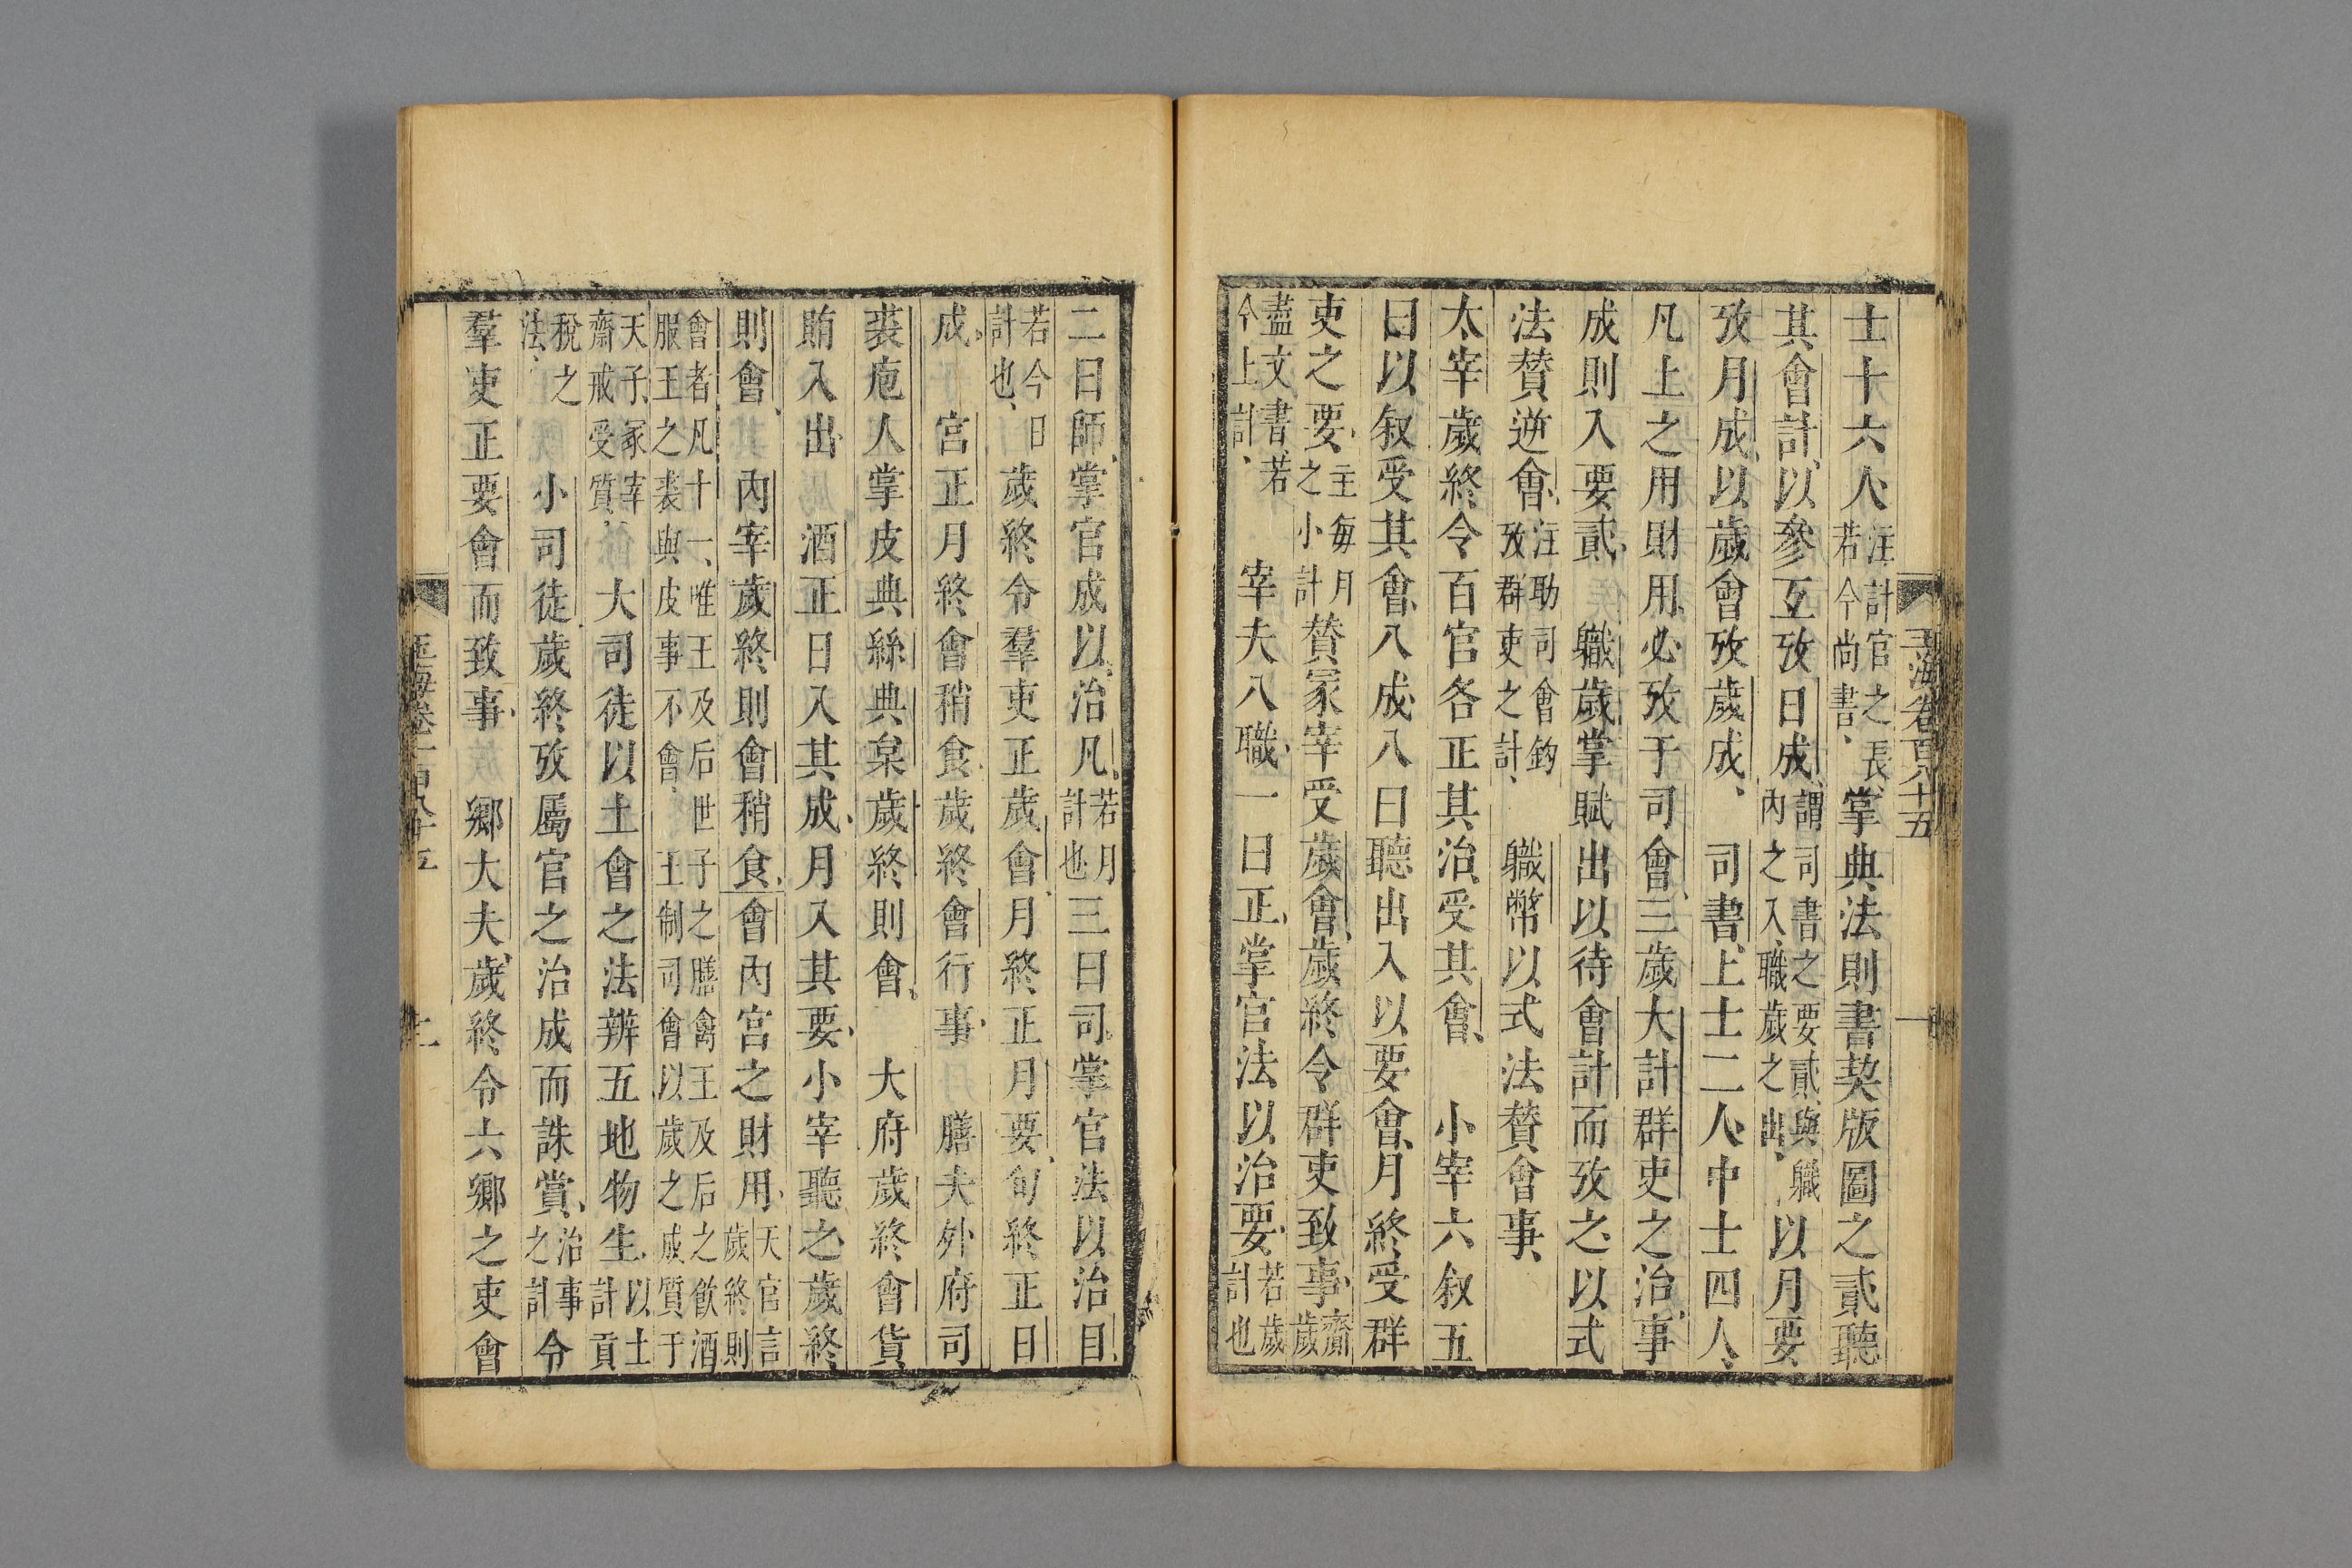 玉海卷百八十五
一
士十六人注計官之長若今尚書掌典法則書契版圖之貳聽
其會計以參互攷日成謂司書之要貳與職內之入職歲之出以月要
攷月成以歲會攷歲成司書上士二人中士四人
凡上之用財用必攷于司會三歲大計群吏之治事
成則入要貳職歲掌賦出以待會計而攷之以式
法贊逆會注助司會鉤攷群吏之計職幣以式法贊會事
太宰歲終令百官各正其治受其會小宰六叙五
曰以叙受其會八成八曰聽出入以要會月終受群
吏之要主每月之小計贊冢宰受歲會歲終令群吏致事齎歲
盡文書若今上計宰夫八職一曰正掌官法以治要若歲計也
二曰師掌官成以治凡若月計也三曰司掌官法以治目
若今日計也歲終令羣吏正歲會月終正月要旬終正日
成宮正月終會稍食歲終會行事膳夫外府司
裘庖人掌皮典絲典枲歲終則會大府歲終會貨
賄入出酒正日入其成月入其要小宰聽之歲終
則會內宰歲終則會稍食會內宮之財用天官言歲終則
會者凡十一唯王及后世子之膳禽王及后之飲酒服王之裘與皮事不會王制司會以歲之成質于
天子冢宰齋戒受質大司徒以土會之法辨五地物生以土計貢
稅之法小司徒歲終攷屬官之治成而誅賞治事之計令
羣吏正要會而致事鄉大夫歲終令六鄉之吏會
玉海卷一百八十五